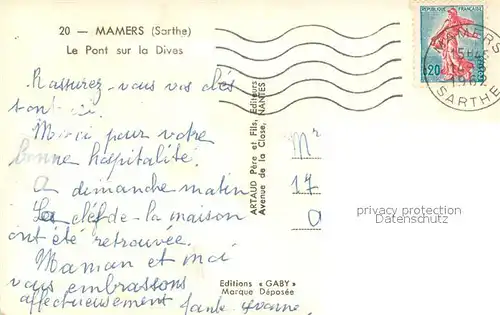 20 — MAMERS (Sarthe)
Le Pont sur la Dives
RÉPUBLIQUE FRANÇAISE
0,20
POSTES
MAMERS
SARTHE
Rassurez-vous vos clés
sont ici.
Merci pour votre
bonne hospitalité.
A dimanche matin
Les clefs de la maison
ont été retrouvée.
Maman et moi
vous embrassons
affectueusement
tante Yvonne
ARTAUD Père et Fils, Éditeurs
Avenue de la Close, NANTES
Mr
17
O
privacy protection
Datenschutz
Editions « GABY »
Marque Déposée